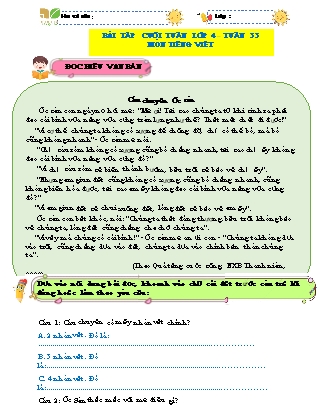 Họ và tên:
Lớp:
BÀI TẬP CUỐI TUẦN LỚP 4 - TUẦN 33
MÔN TIẾNG VIỆT
ĐỌC HIỂU VĂN BẢN
Câu chuyện Ốc sên
Ốc sên con ngày nọ hỏi mẹ: "Mẹ ơi! Tại sao chúng ta từ khi sinh ra phải
đeo cái bình vừa nặng vừa cứng trên lưng như thế? Thật mệt chết đi được!"
"Vì cơ thể chúng ta không có xương để chống đỡ, chỉ có thể bò, mà bò
cũng không nhanh" - Ốc sên mẹ nói.
"Chị sâu róm không có xương cũng bò chẳng nhanh, tại sao chị ấy không
đeo cái bình vừa nặng vừa cứng đó?"
"Vì chị sâu róm sẽ biến thành bướm, bầu trời sẽ bảo vệ chị ấy".
"Nhưng em giun đất cũng không có xương, cũng bò chẳng nhanh, cũng
không biến hóa được, tại sao em ấy không đeo cái bình vừa nặng vừa cứng
đó?"
"Vì em giun đất sẽ chui xuống đất, lòng đất sẽ bảo vệ em ấy".
Ốc sên con bật khóc, nói: "Chúng ta thật đáng thương, bầu trời không bảo
vệ chúng ta, lòng đất cũng chẳng che chở chúng ta".
"Vì vậy mà chúng có cái bình!" - Ốc sên mẹ an ủi con - "Chúng ta không dựa
vào trời, cũng chẳng dựa vào đất, chúng ta dựa vào chính bản thân chúng
ta".
(Theo Quà tặng cuộc sống, NXB Thanh niên,
Dựa vào nội dung bài đọc, khoanh vào chữ cái đặt trước câu trả lời
đúng hoặc làm theo yêu cầu:
Câu 1: Câu chuyện có mấy nhân vật chính?
A. 2 nhân vật. Đó
là:
B. 3 nhân vật. Đó
là:
C. 4 nhân vật. Đó
là:
Câu 2: Ốc Sên thắc mắc với mẹ điều gì?